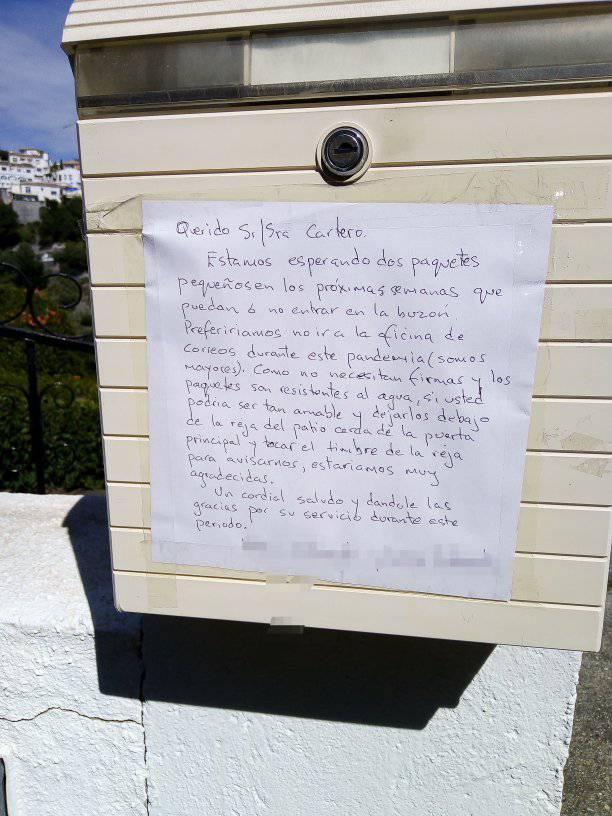 Querido Sr/Sra Cartero.
Estamos esperando dos paquetes
pequeños en los próximas semanas que
puedan ó no entrar en la buzón.
Prefeririamos no ir a la oficina de
correos durante este pandemia (somos
mayores). Como no necesitan firmas y los
paquetes son resistentes al agua, si usted
podria ser tan amable y dejarlos debajo
de la reja del patio cerda de la puerta
principal y tocar el timbre de la reja
para avisarnos, estariamos muy
agradecidas.
Un cordial saludo y dandole las
gracias por su servicio durante este
periodo.